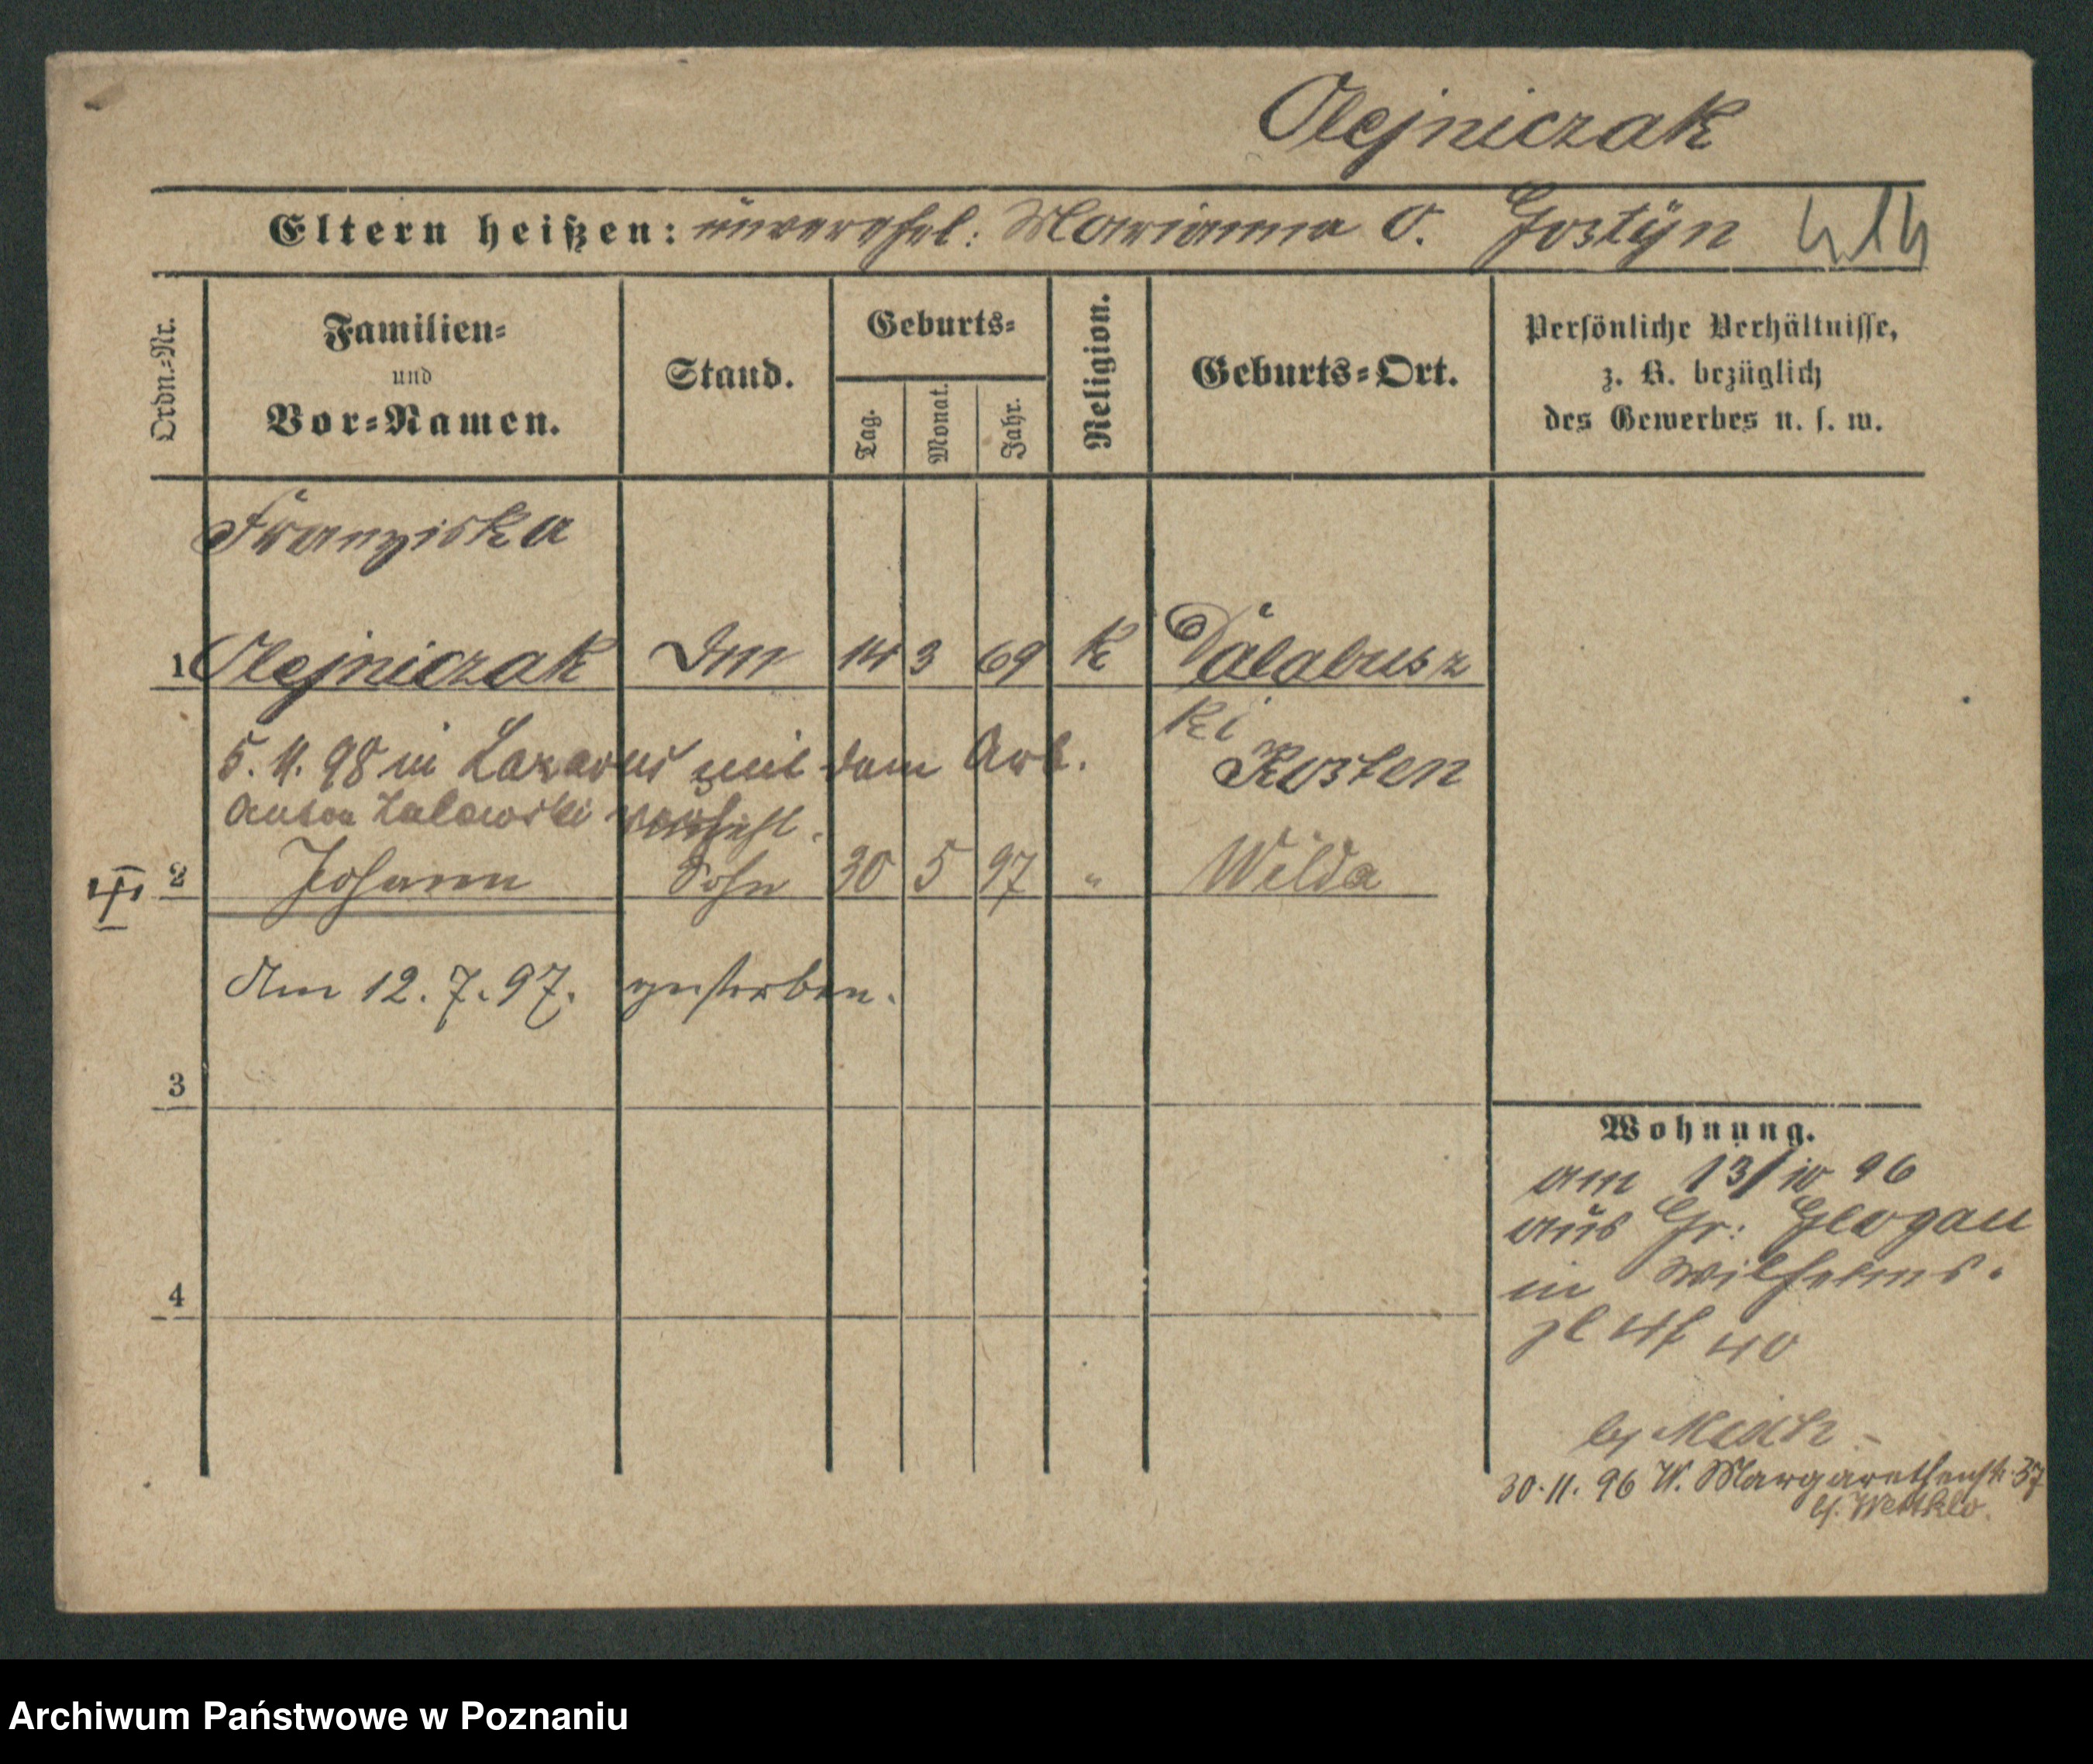 Olejniczak
Eltern heißen: unverehel: Marianna O. Gostÿn
Ordn.=Nr.
Familien=
und
Vor=Namen.
Stand.
Geburts=
Tag.
Monat.
Jahr.
Religion.
Geburts=Ort.
Persönliche Verhältnisse,
z. B. bezüglich
des Gewerbes u. s. w.
Franziska
1 Olejniczak 14 3 69 K Dalabusz
ki
Kosten
5. 11. 98 in Lazarus mit dem Arb.
Anton verehl.
2 Johann Sohn 30 5 97 " Wilda
Am 12. 7. 97. gestorben.
3
4
Wohnung.
am 13/10 96
aus Gr: Glogau
in Wilhelms.
pl 40
30. 11. 96 W. Margarethenstr. 37
Archiwum Państwowe w Poznaniu